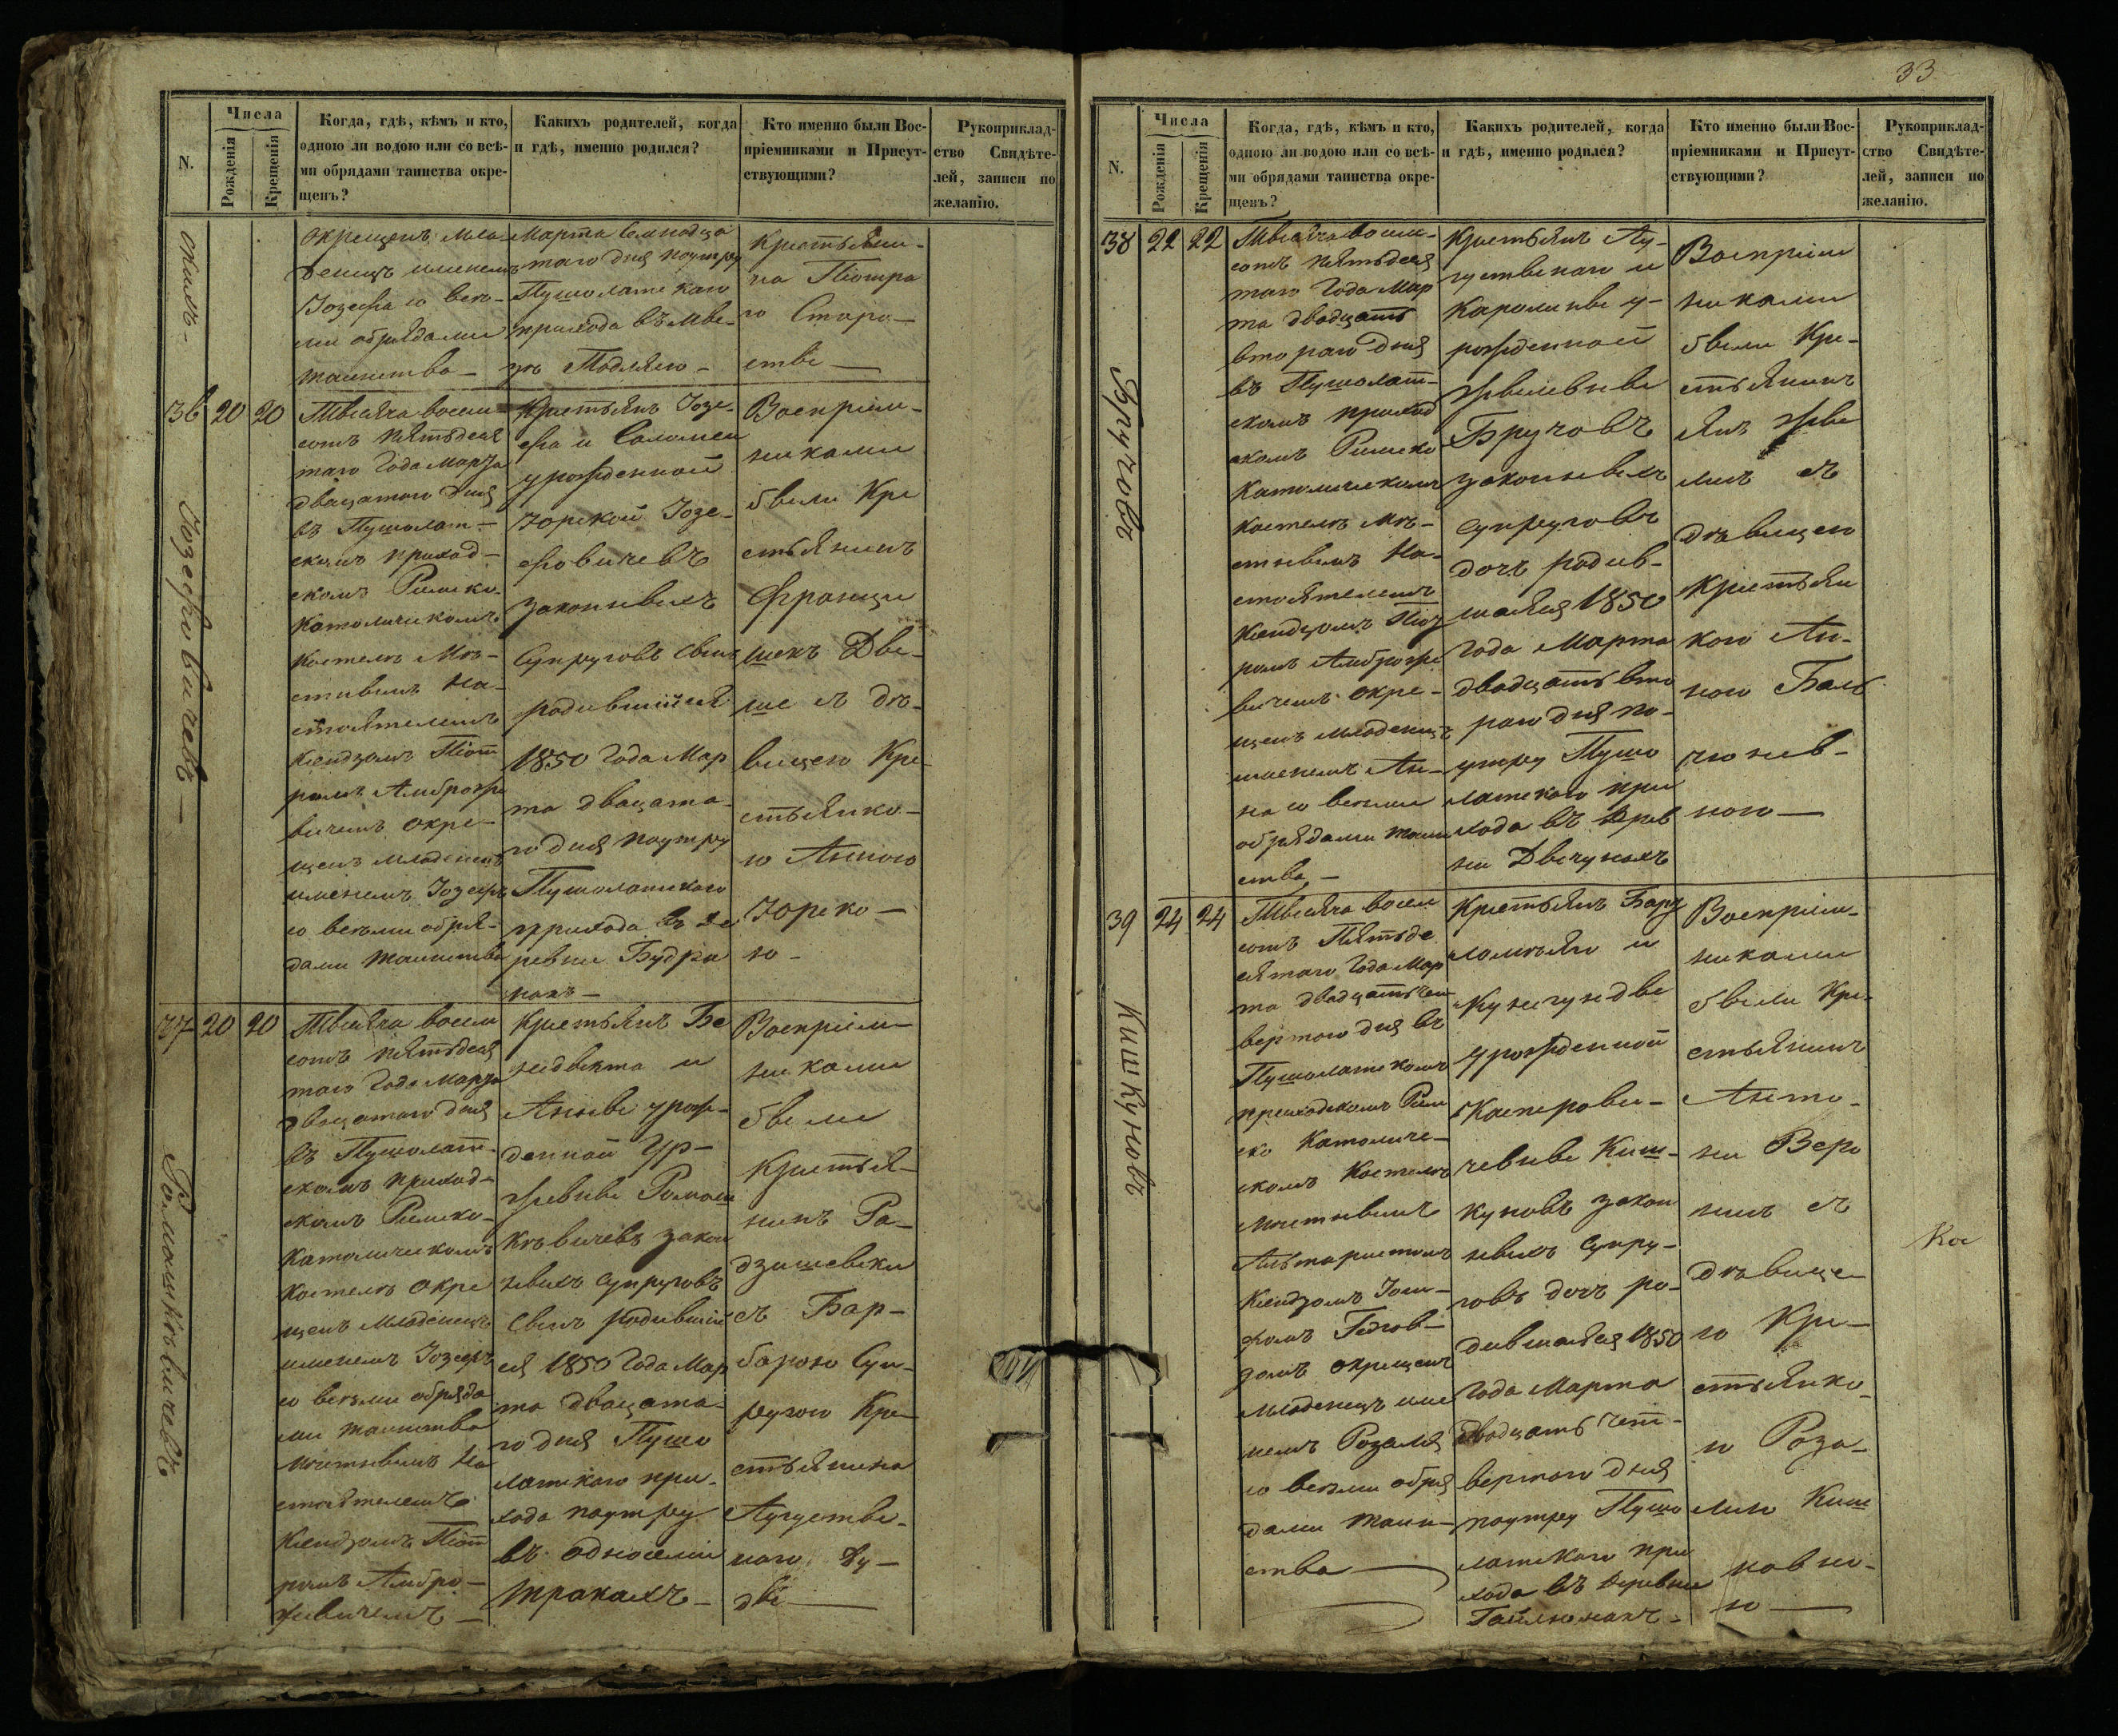 N.
Числа
Рожденія
Крещенія
Когда, гдѣ, кѣмъ и кто,
одною ли водою или со всѣ-
ми обрядами таинства окре-
щенъ?
Какихъ родителей, когда
и гдѣ, именно родился?
Кто именно были Вос-
пріемниками и Присут-
ствующими?
Рукоприклад-
ство Свидѣте-
лей, записи по
желанію.
окрещенъ мла-
денецъ именемъ
Іозефа со всѣ-
ми обрядами
таинства —
Марта
таго дня поутру
Пушолатскаго
прихода въ
Крестьяни-
на Піотра
го Старо-
стѣ —
36
20
20
Іозефовичевъ —
Тысяча восем-
сотъ пятьдеся
таго Года Марта
двацатого дня
въ Пушолат-
скомъ приход-
скомъ Римско-
Католическомъ
костелѣ мѣ-
стнымъ На-
стоятелемъ
Ксендзомъ Піот
ромъ Амброже
вичемъ окре-
щенъ младенецъ
именемъ Іозефъ
со всѣми обря-
дами таинства
Крестьянъ Іозе-
фа и Саломеи
урожденной
Юрской Іозе-
фовичевъ
законныхъ
Супруговъ сынъ
родившійся
1850 Года Мар
та двацата-
го дня поутру
Пушолатского
прихода въ де
ревни Будра
нахъ —
Воспріем-
никами
были Кре
стьянинъ
Францы
шекъ
ше съ дѣ-
вицею Кре-
стьянко-
ю Анною
Юрско —
ю -
37
20
20
Ромашкѣвичевъ
Тысяча восем
сотъ пятьдеся
таго Года Марта
двацатого дня
въ Пушолат-
скомъ приход-
скомъ Римско-
Католическомъ
костелѣ окре
щенъ младенецъ
именемъ Іозефъ
со всѣми обряда
ми таинства
мѣстнымъ На
стоятелемъ
Ксендзомъ Піот
ромъ Амбро-
жевичемъ —
Крестьянъ Бе
недыкта и
Анны урож-
денной Ур-
жевны Ромаш
кѣвичевъ закон
ныхъ супруговъ
Сынъ родившій
ся 1850 Года Мар
та двацата-
го дня Пушо
латского при-
хода поутру
въ односеліи
Тракахъ —
Воспріем-
никами
были
Крестья-
нинъ Ра-
дзишевски
съ Бар-
барою Суп-
ругою Кре-
стьянина
Аугусты-
ного
33
N.
Числа
Рожденія
Крещенія
Когда, гдѣ, кѣмъ и кто,
одною ли водою или со всѣ-
ми обрядами таинства окре-
щенъ?
Какихъ родителей, когда
и гдѣ, именно родился?
Кто именно были Вос-
пріемниками и Присут-
ствующими?
Рукоприклад-
ство Свидѣте-
лей, записи по
желанію.
38
22
22
Бручовъ
Тысяча восем-
сотъ пятьдеся
таго Года Мар
та двадцать
втораго дня
въ Пушолат-
скомъ приход
скомъ Римско
Католическомъ
костелѣ мѣ-
стнымъ На-
стоятелемъ
Ксендзомъ Піот
ромъ Амброже
вичемъ окре-
щенъ младенецъ
именемъ Ан-
на со всѣми
обрядами таин
ства —
Крестьянъ Ау-
густынаго и
Каролины у-
рожденной
Бручовъ
законныхъ
супруговъ
дочъ родив-
шаяся 1850
Года Марта
двадцать вто
раго дня по-
утру Пушо
латского при
хода въ древ
ни Двычунахъ
Воспріем
никами
были Кре-
стьянинъ
съ
дѣвицею
Крестьян
кою Ан-
ною
ною —
39
24
24
Кишкуновъ
Тысяча восем
сотъ Пятьде
сятаго Года Мар
та двадцатьчет
вертого дня въ
Пушолатскомъ
приходскомъ Рим
ско Католиче-
скомъ Костелѣ
мѣстнымъ
Альтаристомъ
Ксендзомъ
окрещенъ
младенецъ име
немъ Розалія
со всѣми обря
дами таин-
ства —
Крестьянъ Барт
ломѣя и
Кунегунды
урожденной
Касперови-
чевны Киш-
куновъ закон
ныхъ супру-
говъ дочъ ро-
дившаяся 1850
Года Марта
двадцать чет-
вертого дня
поутру Пушо
латского при
хода въ деревни
Гайлюнахъ -
Воспріем-
никами
были Кре-
стьянинъ
Анто-
ни
съ
дѣвице-
ю Кре-
стьянко-
ю Роза-
лiю Киш
ковно-
ю —